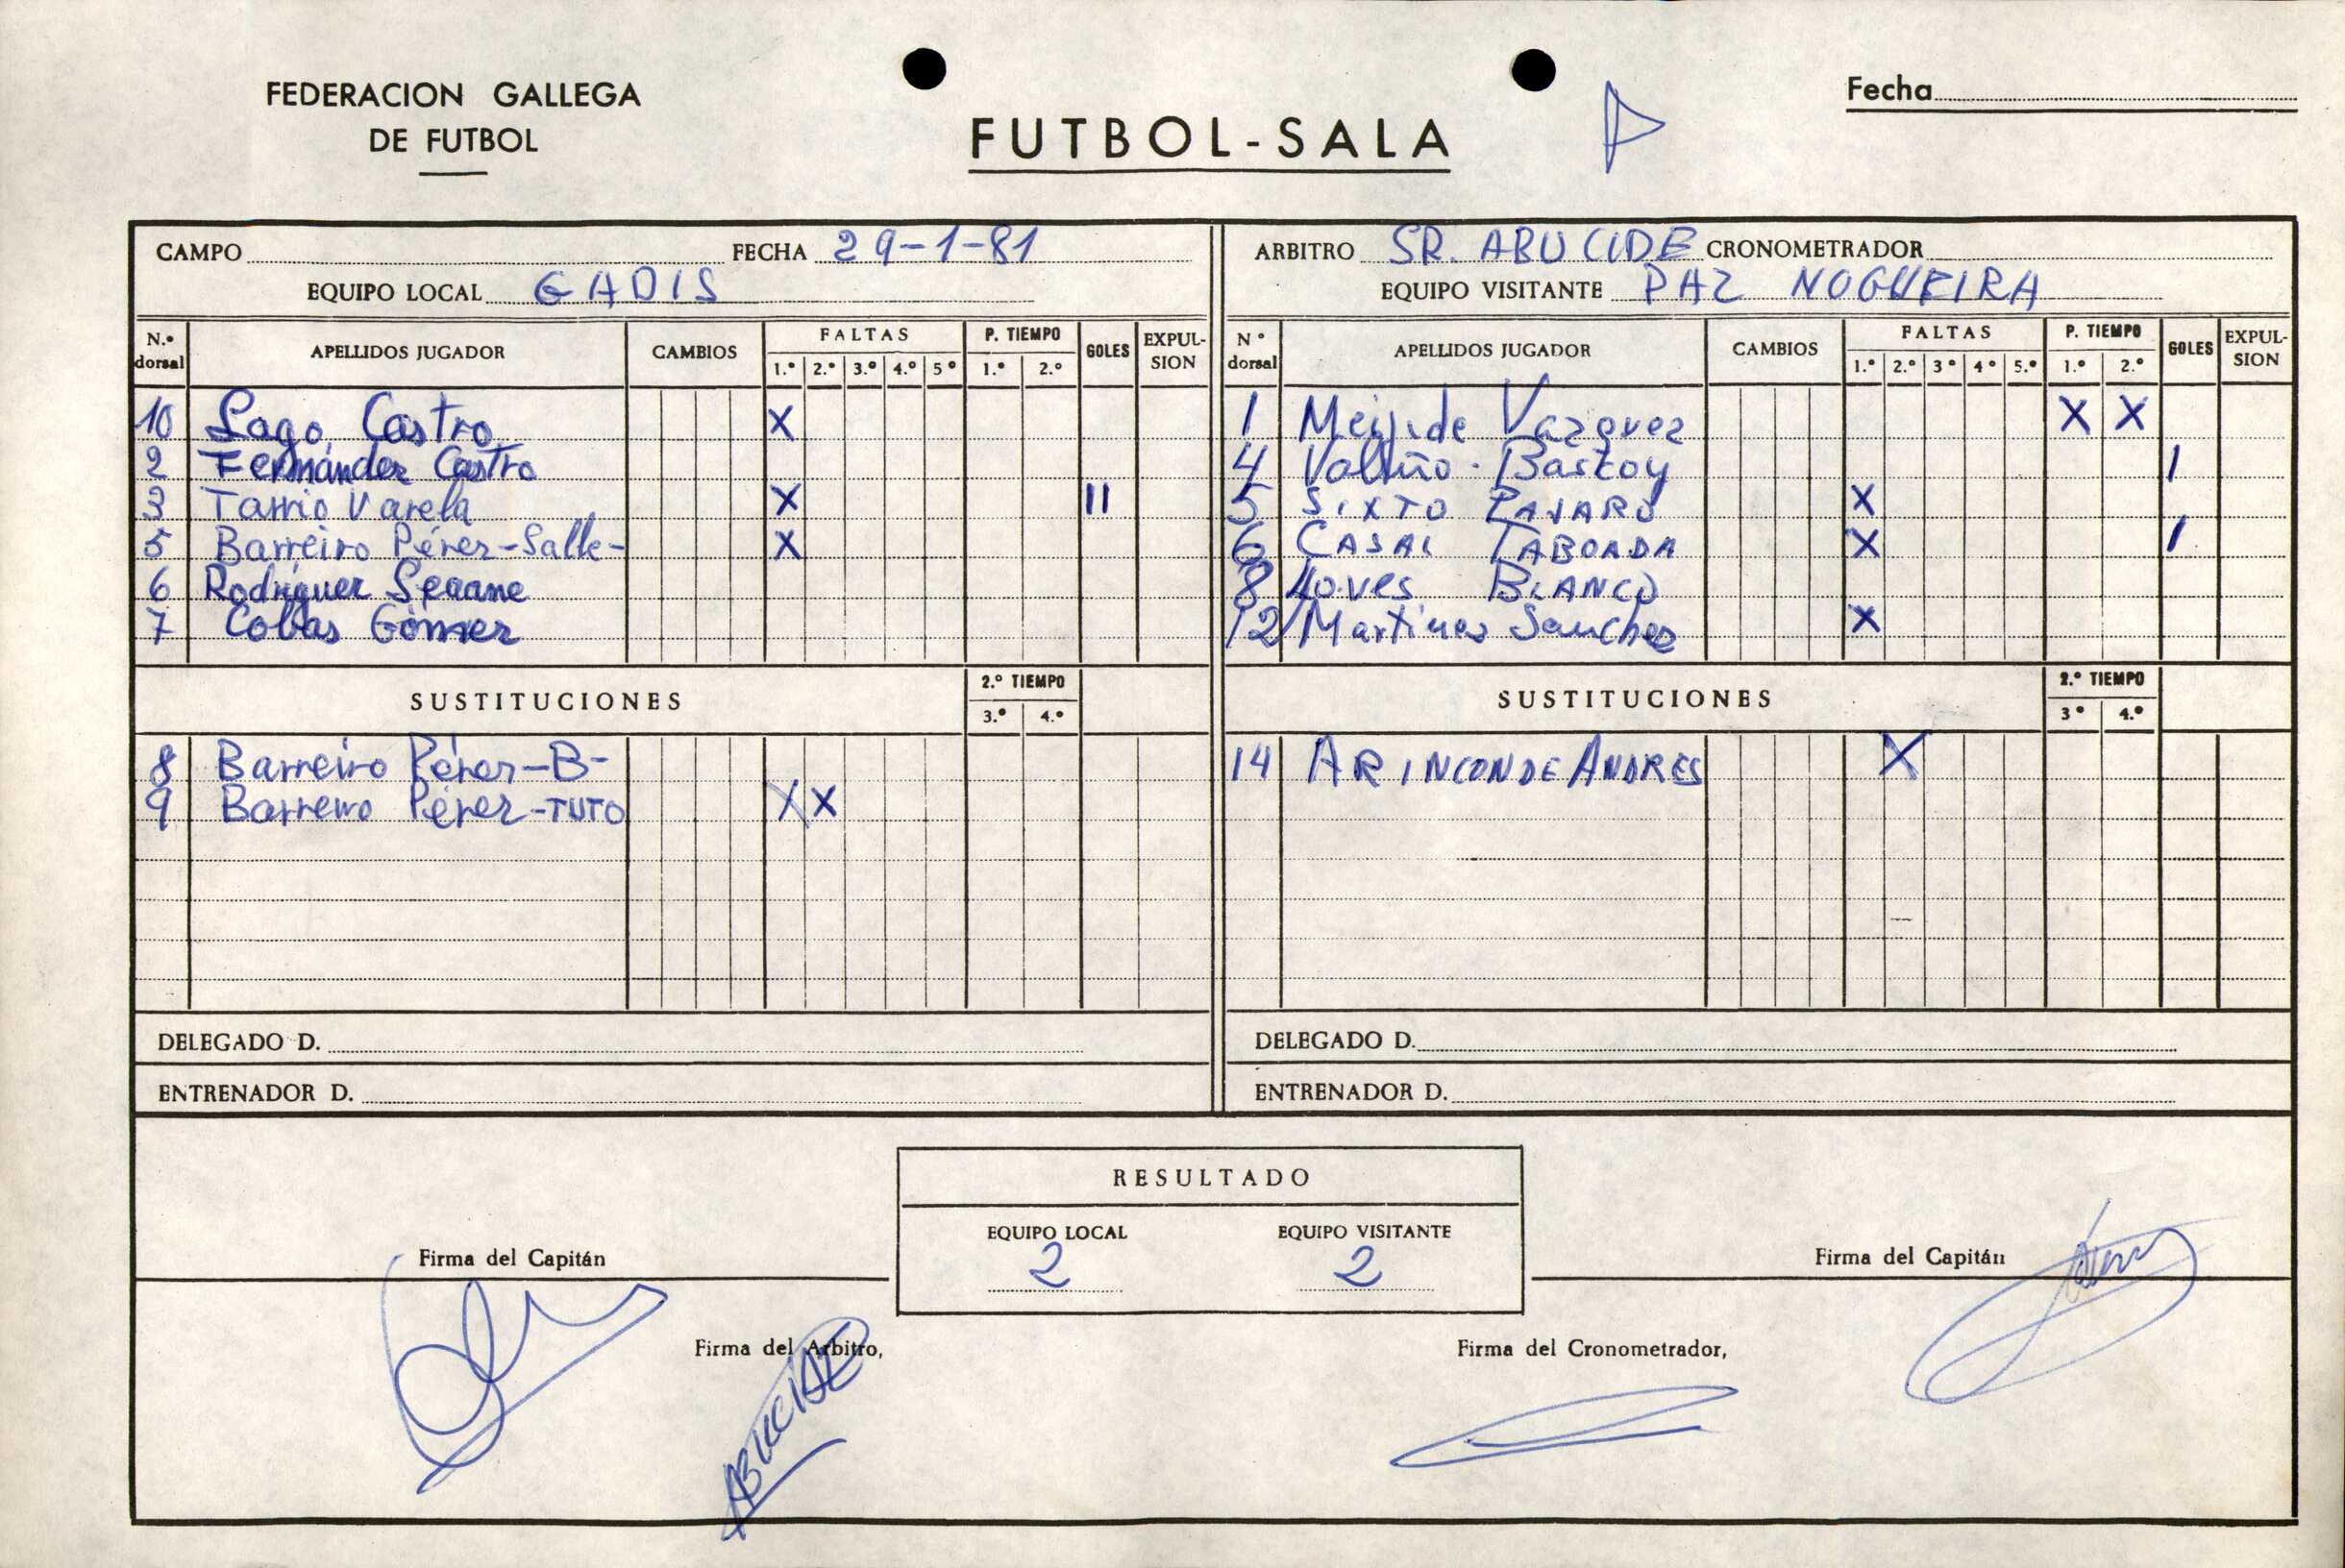 FEDERACION GALLEGA
DE FUTBOL
FUTBOL-SALA
Fecha
CAMPO FECHA 29-1-81
EQUIPO LOCAL GADIS
N.º dorsal APELLIDOS JUGADOR CAMBIOS FALTAS 1.º 2.º 3.º 4.º 5º P. TIEMPO 1.º 2.º GOLES EXPUL-SION
10 Lago Castro X
2 Fernández Castro
3 Tarrio Varela X II
5 Barreiro Pérez-Salle- X
6 Rodríguez Seoane
7 Cobas Gómez
SUSTITUCIONES 2.º TIEMPO 3.º 4.º
8 Barreiro Pérez-B-
9 Barreiro Pérez-TUTO X X
DELEGADO D.
ENTRENADOR D.
ARBITRO SR. ABUCIDE CRONOMETRADOR
EQUIPO VISITANTE PAZ NOGUEIRA
Nº dorsal APELLIDOS JUGADOR CAMBIOS FALTAS 1.º 2.º 3º 4º 5.º P. TIEMPO 1.º 2.º GOLES EXPUL-SION
1 Meijide Vazquez X X
4 Valiño Bascoy I
5 SIXTO PAJARO X
6 CASAL TABOADA X I
8 BLANCO
12 Martinez Sanchez X
SUSTITUCIONES 2.º TIEMPO 3º 4.º
14 A RINCON DE ANDRES X
DELEGADO D.
ENTRENADOR D.
RESULTADO
EQUIPO LOCAL EQUIPO VISITANTE
2 2
Firma del Capitán
Firma del Capitán
Firma del Arbitro,
ABUCIDE
Firma del Cronometrador,